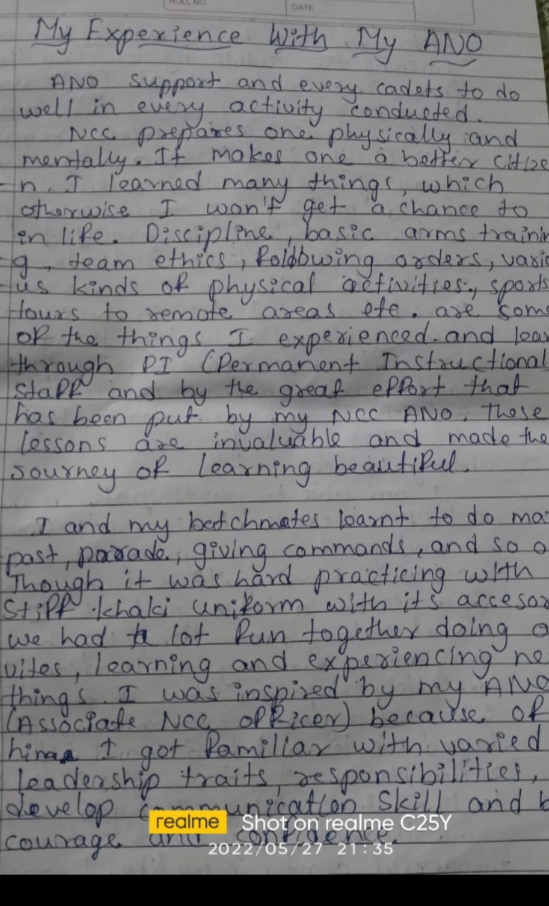 ROLL NO.
DATE
My Experience With My ANO
ANO support and every cadets to do
well in every activity conducted.
NCC prepares one physically and
mentally. It makes one a better citize
n. I learned many things, which
otherwise I won't get a chance to
in life. Discipline, basic arms trainin
g, team ethics, following orders, vario
us kinds of physical activities, sports
tours to remote areas etc. are som
of the things I experienced and lear
through PI (Permanent Instructional
Staff and by the great effort that
has been put by my NCC ANO. These
lessons are invaluable and made the
journey of learning beautiful.
I and my batchmates learnt to do mar
past, parade, giving commands, and so o
Though it was hard practicing with
Stiff khaki uniform with its accesor
we had a lot fun together doing a
vites, learning and experiencing ne
things. I was inspired by my ANO
(Associate NCC officer) because of
him I got familiar with varied
leadership traits, responsibilities,
develop communication Skill and b
courage and confidence.
realme Shot on realme C25Y
2022/05/27 21:35